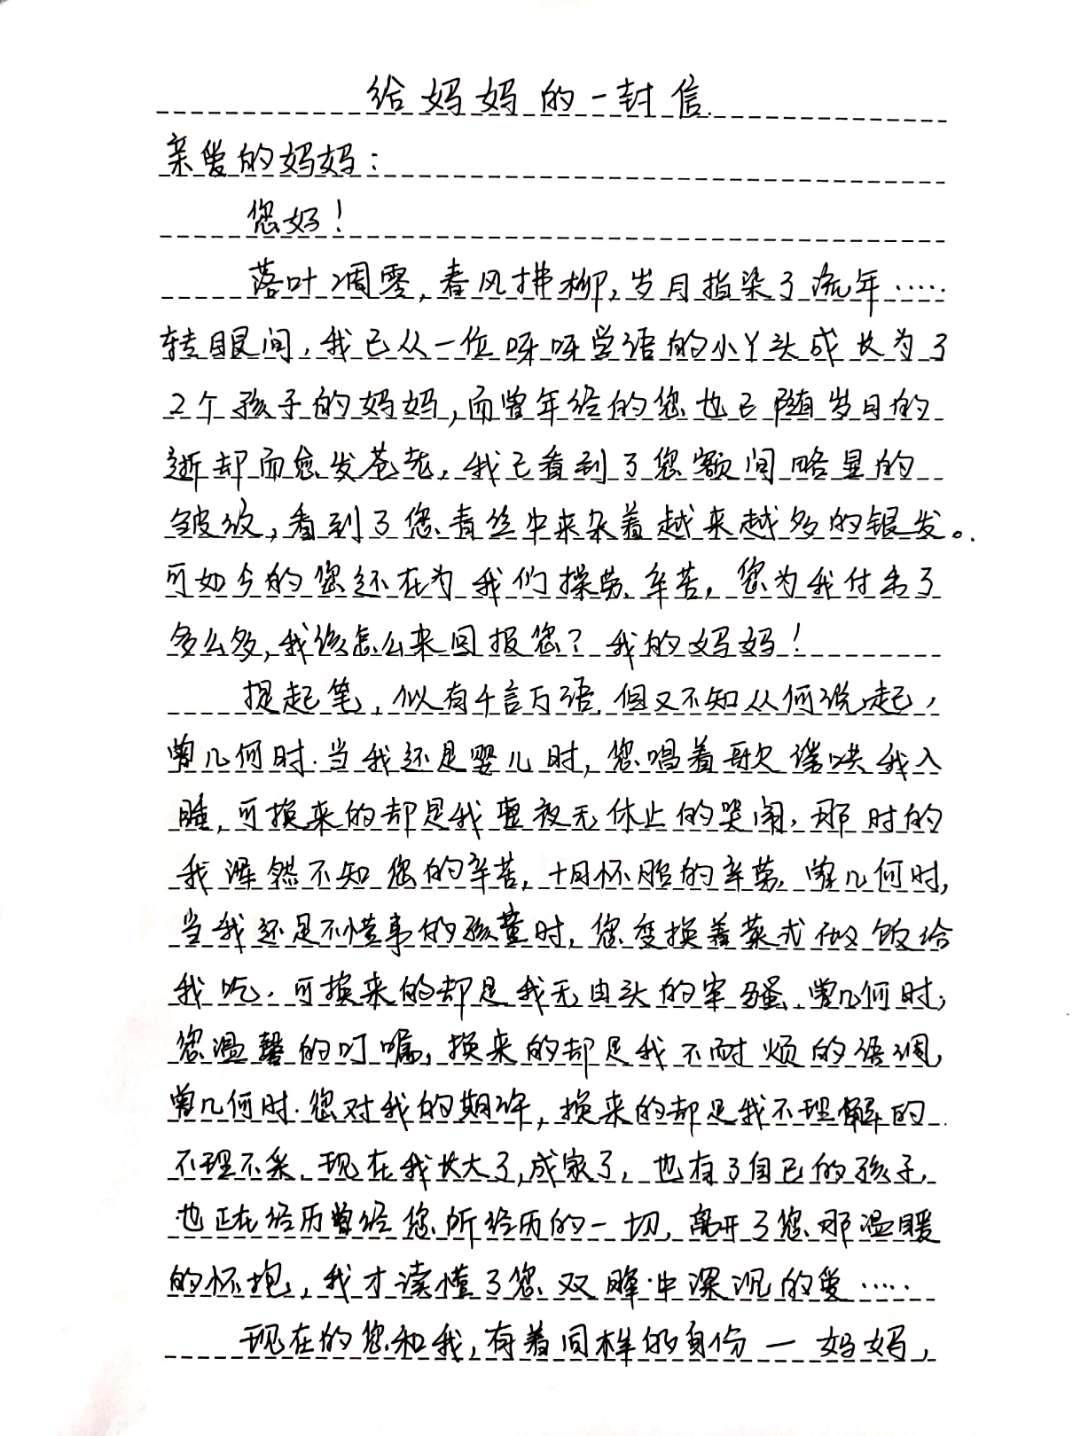 给妈妈的一封信
亲爱的妈妈：
您好！
落叶凋零，春风拂柳，岁月指染了流年……
转眼间，我已从一位呀呀学语的小丫头成长为了
2个孩子的妈妈，而曾年经的您也已随岁月的
逝却而愈发苍老，我已看到了您额间略显的
皱纹，看到了您青丝中夹杂着越来越多的银发。
可如今的您还在为我们操劳、辛苦，您为我付出了
多么多，我该怎么来回报您？我的妈妈！
提起笔，似有千言万语，但又不知从何说起，
曾几何时，当我还是婴儿时，您唱着歌谣哄我入
睡，可换来的却是我整夜无休止的哭闹，那时的
我浑然不知您的辛苦，十月怀胎的辛劳，曾几何时，
当我还是不懂事的孩童时，您变换着菜式做饭给
我吃，可换来的却是我无由头的牢骚，曾几何时，
您温馨的叮嘱，换来的却是我不耐烦的语调，
曾几何时，您对我的期许，换来的却是我不理解的
不理不采，现在我长大了，成家了，也有了自己的孩子，
也正在经历曾经您所经历的一切，离开了您那温暖
的怀抱，我才读懂了您双眸中深沉的爱……
现在的您和我，有着同样的身份一妈妈，